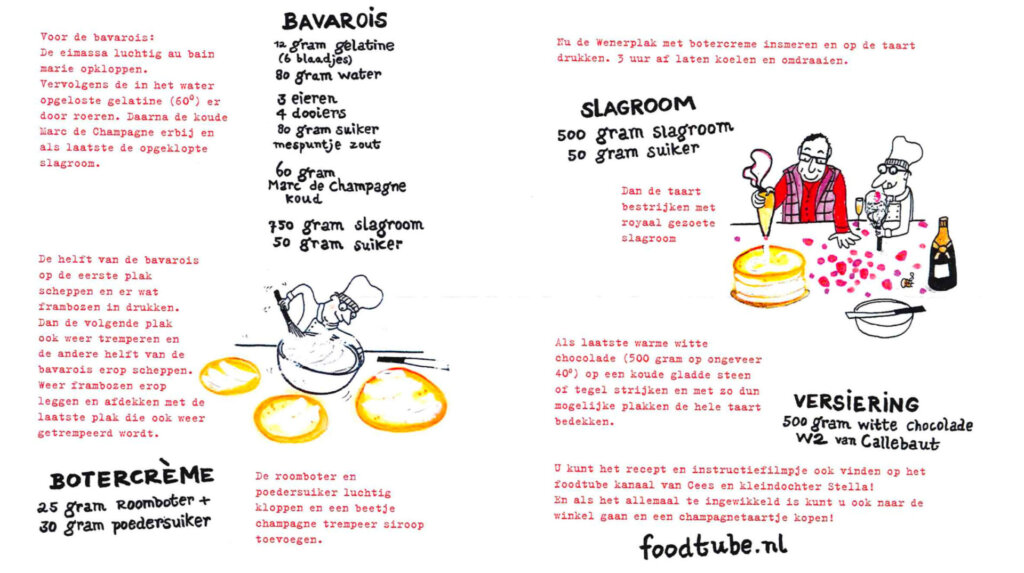 BAVAROIS
Voor de bavarois:
De eimassa luchtig au bain
marie opkloppen.
Vervolgens de in het water
opgeloste gelatine (60⁰) er
door roeren. Daarna de koude
Marc de Champagne erbij en
als laatste de opgeklopte
slagroom.
12 gram gelatine
(6 blaadjes)
80 gram water
3 eieren
4 dooiers
80 gram suiker
mespuntje zout
60 gram
Marc de Champagne
koud
750 gram slagroom
50 gram suiker
De helft van de bavarois
op de eerste plak
scheppen en er wat
frambozen in drukken.
Dan de volgende plak
ook weer tremperen en
de andere helft van de
bavarois erop scheppen.
Weer frambozen erop
leggen en afdekken met de
laatste plak die ook weer
getrempeerd wordt.
BOTERCRÈME
25 gram Roomboter +
30 gram poedersuiker
De roomboter en
poedersuiker luchtig
kloppen en een beetje
champagne trempeer siroop
toevoegen.
Nu de Wenerplak met botercreme insmeren en op de taart
drukken. 3 uur af laten koelen en omdraaien.
SLAGROOM
500 gram slagroom
50 gram suiker
Dan de taart
bestrijken met
royaal gezoete
slagroom
Als laatste warme witte
chocolade (500 gram op ongeveer
40⁰) op een koude gladde steen
of tegel strijken en met zo dun
mogelijke plakken de hele taart
bedekken.
VERSIERING
500 gram witte chocolade
W2 van Callebaut
U kunt het recept en instructiefilmpje ook vinden op het
foodtube kanaal van Cees en kleindochter Stella!
En als het allemaal te ingewikkeld is kunt u ook naar de
winkel gaan en een champagnetaartje kopen!
foodtube.nl